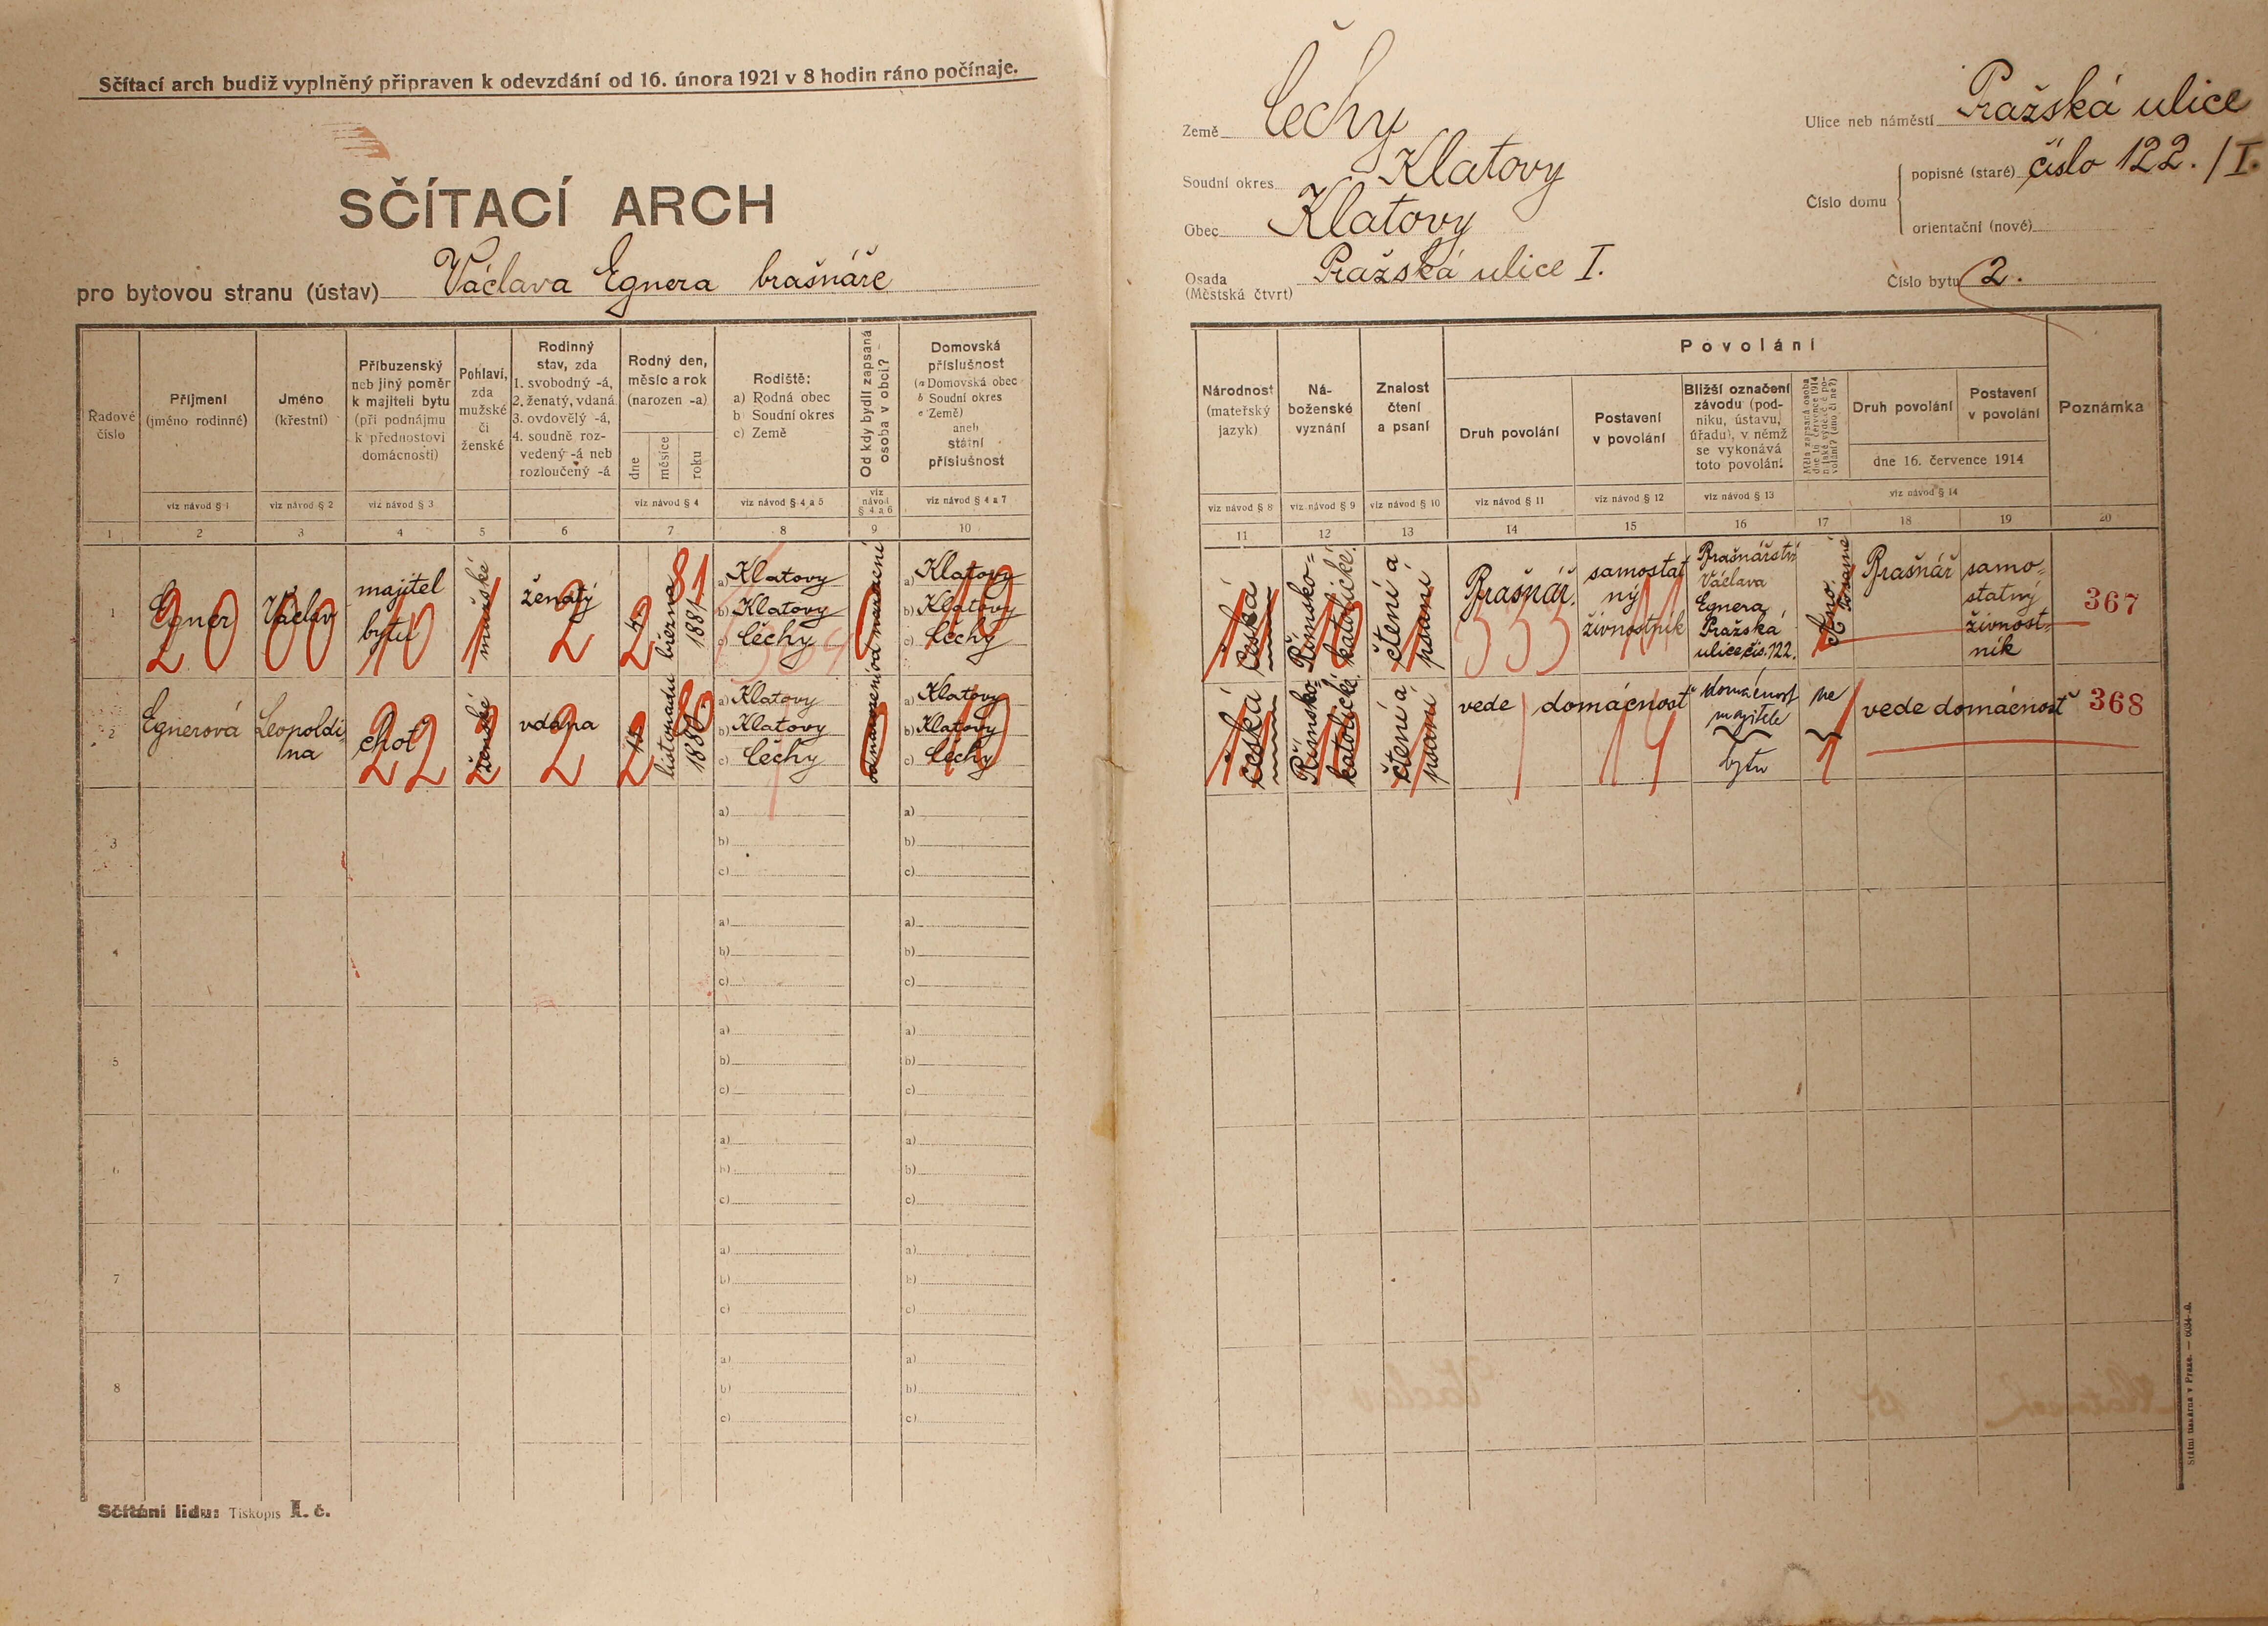 Sčítací arch budiž vyplněný připraven k odevzdání od 16. února 1921 v 8 hodin ráno počínaje.
SČÍTACÍ ARCH
pro bytovou stranu (ústav) Václava Egnera brašnáře
Země Čechy
Soudní okres Klatovy
Obec Klatovy
Osada (Městská čtvrt) Pražská ulice I.
Ulice neb náměstí Pražská ulice
Číslo domu
popisné (staré) číslo 122./I.
orientační (nové)
Číslo bytu 2.
Řadové číslo
Příjmení (jméno rodinné)
Jméno (křestní)
Příbuzenský neb jiný poměr k majiteli bytu (při podnájmu k přednostovi domácnosti)
Pohlaví, zda mužské či ženské
Rodinný stav, zda
1. svobodný -á,
2. ženatý, vdaná
3. ovdovělý -á,
4. soudně rozvedený -á neb rozloučený -á
Rodný den, měsíc a rok (narozen -a)
dne měsíce roku
Rodiště:
a) Rodná obec
b) Soudní okres
c) Země
Od kdy bydlí zapsaná osoba v obci?
Domovská příslušnost
(a Domovská obec
b Soudní okres
c Země)
aneb
státní
příslušnost
viz návod § 1
viz návod § 2
viz návod § 3
viz návod § 4
viz návod § 4 a 5
viz návod § 4 a 6
viz návod § 4 a 7
1 2 3 4 5 6 7 8 9 10
Národnost (mateřský jazyk)
Náboženské vyznání
Znalost čtení a psaní
Povolání
Druh povolání
Postavení v povolání
Bližší označení závodu (podniku, ústavu, úřadu), v němž se vykonává toto povolání.
Měla zapsaná osoba dne 16. července 1914 nějaké výdělečné povolání? (ano či ne?)
Druh povolání
Postavení v povolání
dne 16. července 1914
Poznámka
viz návod § 8
viz návod § 9
viz návod § 10
viz návod § 11
viz návod § 12
viz návod § 13
viz návod § 14
11 12 13 14 15 16 17 18 19 20
1
Egner
Václav
majitel
bytu
mužské
ženatý
března
1881
a) Klatovy
b) Klatovy
c) Čechy
od narození
a) Klatovy
b) Klatovy
c) Čechy
česká
Římsko-
katolické.
čtení a
psaní
Brašnář.
samostat
ný
živnostník
Brašnářství
Václava
Egnera,
Pražská
ulice čís. 122.
Ano.
Brašnář
samo-
statný
živnost-
ník
367
20 00 10 1 2 2 81 0 10
1 10 1 333 11 1
2
Egnerová
Leopoldi
na
choť
ženské
vdana
listopadu
1880
a) Klatovy
b) Klatovy
c) Čechy
od narození
a) Klatovy
b) Klatovy
c) Čechy
česká
Římsko-
katolické
čtení a
psaní
vede domácnost
domácnost
majitele
bytu
ne
vede domácnost
368
22 2 2 2 80 0 10
1 10 1 1 14 1
3
a)
b)
c)
a)
b)
c)
4
a)
b)
c)
a)
b)
c)
5
a)
b)
c)
a)
b)
c)
6
a)
b)
c)
a)
b)
c)
7
a)
b)
c)
a)
b)
c)
8
a)
b)
c)
a)
b)
c)
Sčítání lidu: Tiskopis I. č.
Státní tiskárna v Praze.